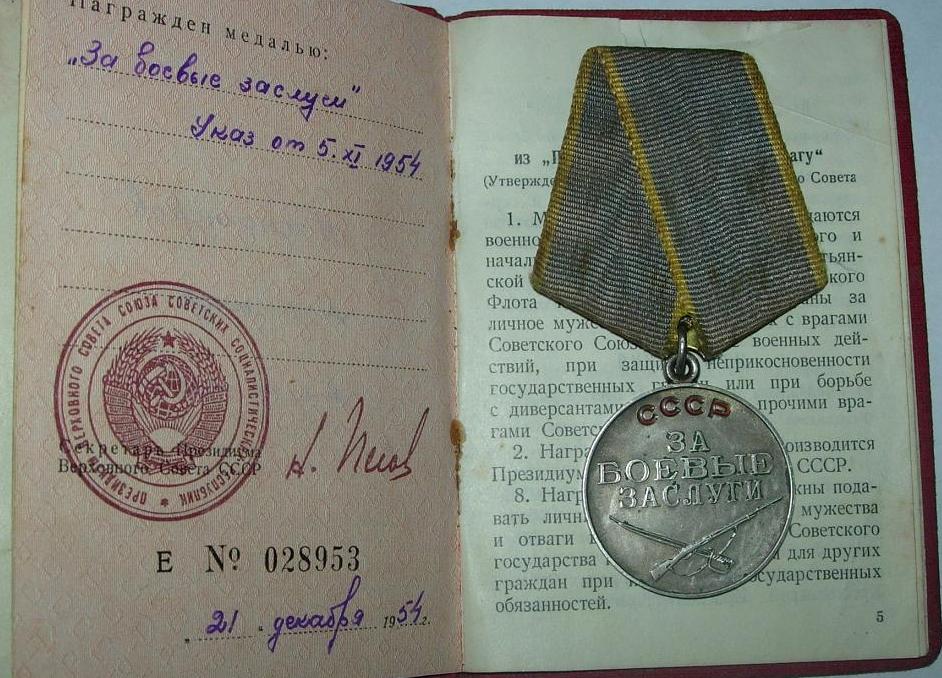 Награжден медалью:
„За боевые заслуги"
Указ от 5.XI 1954
ПРЕЗИДИУМ ВЕРХОВНОГО СОВЕТА СОЮЗА СОВЕТСКИХ СОЦИАЛИСТИЧЕСКИХ РЕСПУБЛИК
Секретарь Президиума
Верховного Совета СССР
Е № 028953
„21" декабря 1954 г.
из „П агу"
(Утвержде о Совета
1. М даются
военно ого и
начал тьян-
ской кого
Флота ны за
личное муже к с врагами
Советского Союз военных дей-
ствий, при защи неприкосновенности
государственных г или при борьбе
с диверсантам прочими вра-
гами Советс
2. Награ оизводится
Президиу СССР.
8. Наг жны пода-
вать личн мужества
и отваги Советского
государства и для других
граждан при осударственных
обязанностей.
5
СССР
ЗА
БОЕВЫЕ
ЗАСЛУГИ